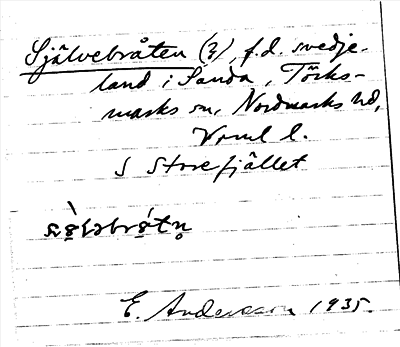 Självebråten (3), f.d. svedje-
land i Sanda, Töcks-
marks sn, Nordmarks hd,
Värml l.
S Storefjället
E. Andersson 1935.